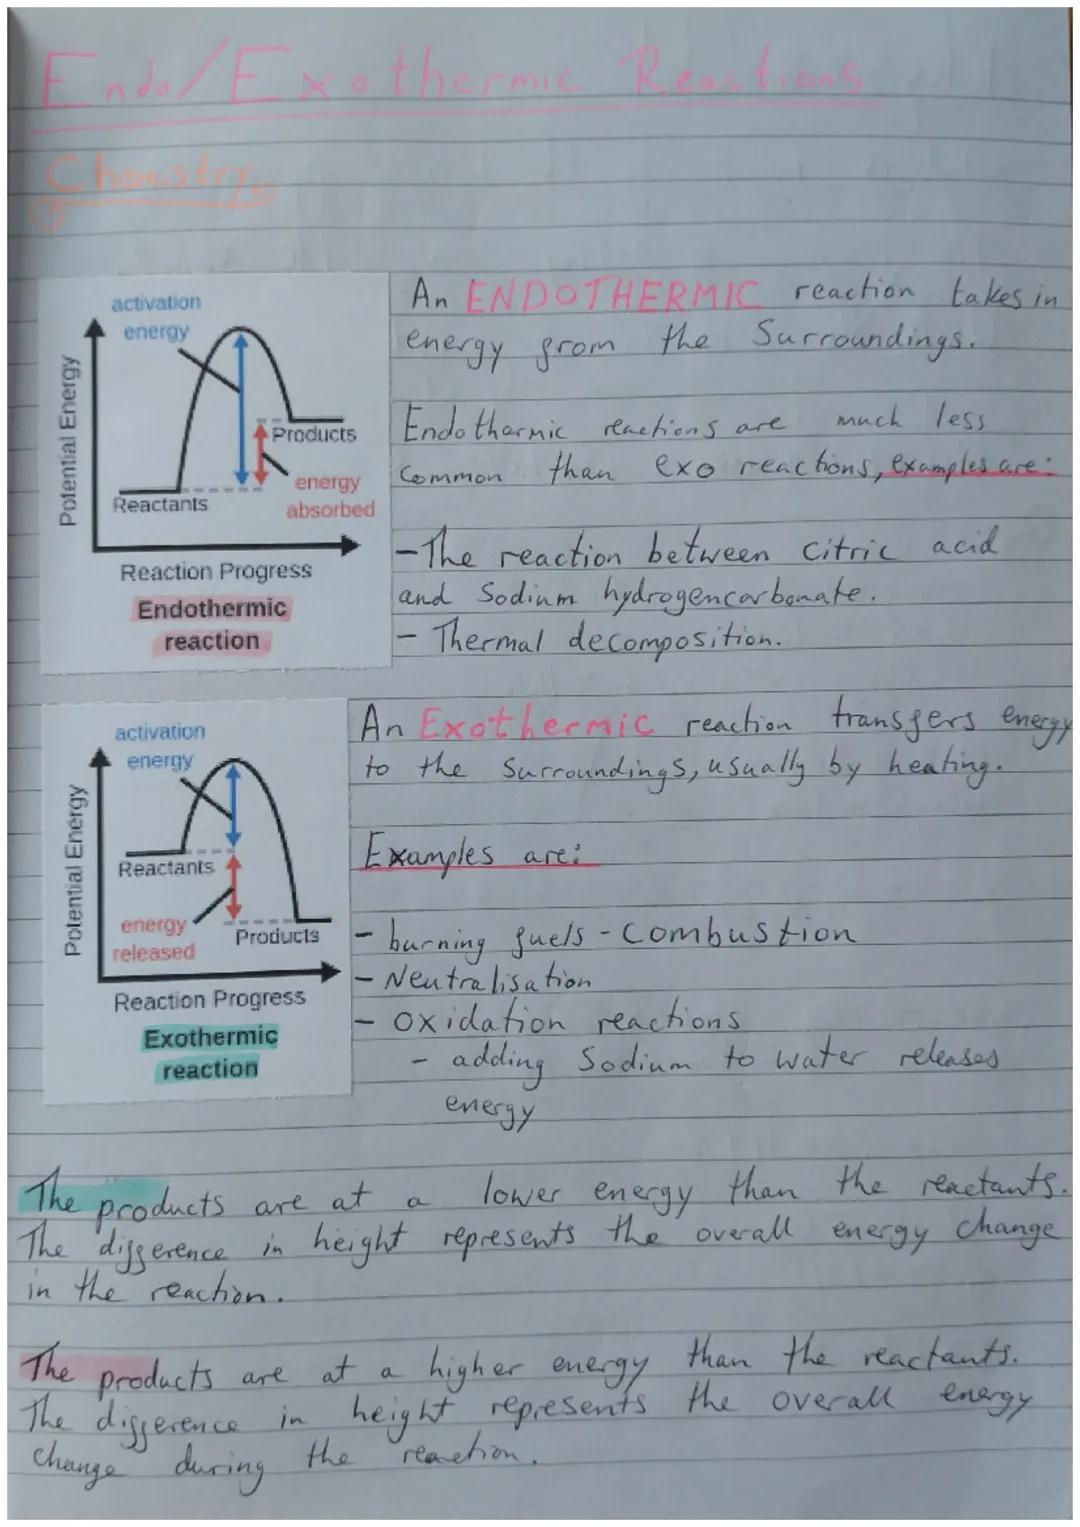 Endo/Exothermic Reactions
Chemistry
activation
energy
Potential Energy
Products
energy
absorbed
Reactants
Reaction Progress
Endothermic
reaction
An ENDOTHERMIC reaction takes in
energy from the Surroundings.
Endothermic reactions are much less
common than exo reactions, examples are:
-The reaction between citric acid
and Sodium hydrogencarbonate.
- Thermal decomposition.
activation
energy
Potential Energy
Reactants
energy
released
Products
Reaction Progress
Exothermic
reaction
An Exothermic reaction transfers energy
to the Surroundings, usually by heating.
Examples are:
- burning fuels - Combustion
- Neutralisation
- Oxidation reactions
- adding Sodium to water releases
energy
The products are at a lower energy than the reactants.
The difference in height represents the overall energy change
in the reaction.
The products are at a higher energy than the reactants.
The difference in height represents the overall energy
change during the reaction.